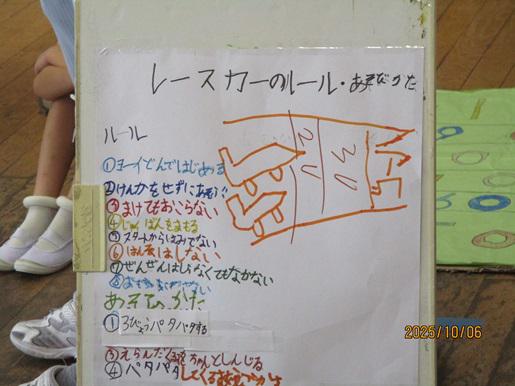 レースカーのルール・あそびかた
ルール
①ヨーイどんではじめる
②けんかをせずにあそぶ
③まけてもおこらない
④じゅんばんをまもる
⑤スタートからはみでない
⑥はんそくはしない
⑦ぜんぜんはしらなくてもなかない
あそびかた
①3びょうパタパタする
③えらんだくるまをちゃんとしんじる
④パタパタ
2025/10/06